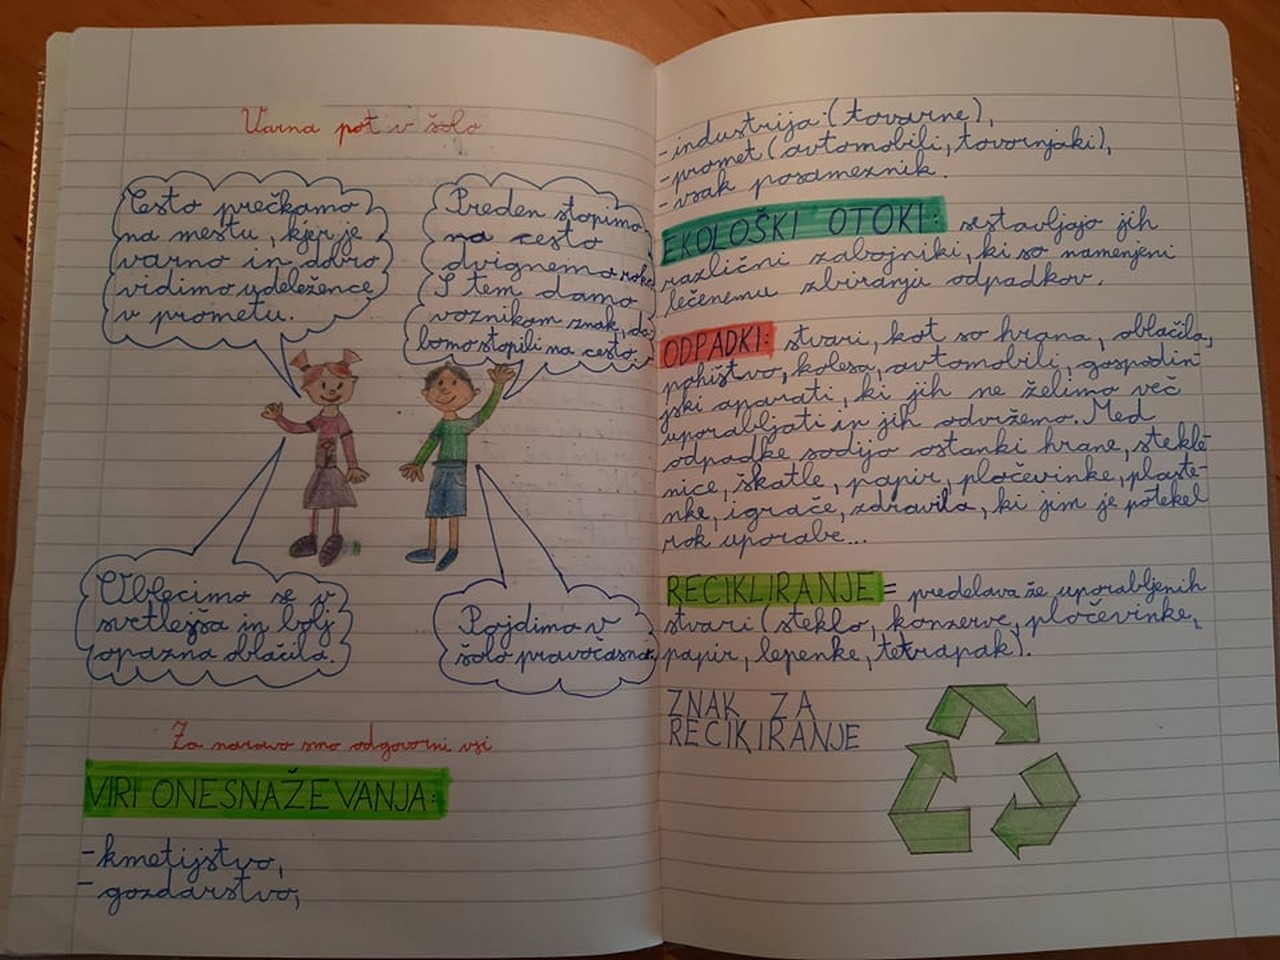 Varna pot v šolo
Cesto prečkamo
na mestu, kjer je
varno in dobro
vidimo udeležence
v prometu.
Preden stopimo
na cesto
dvignemo roko.
S tem damo
voznikom znak, da
bomo stopili na cesto.
Oblecimo se v
svetlejša in bolj
opazna oblačila.
Pojdimo v
šolo pravočasno.
Za naravo smo odgovorni vsi
VIRI ONESNAŽEVANJA:
- kmetijstvo,
- gozdarstvo,
- industrija (tovarne),
- promet (avtomobili, tovornjaki),
- vsak posameznik.
EKOLOŠKI OTOKI: sestavljajo jih
različni zabojniki, ki so namenjeni
ločenemu zbiranju odpadkov.
ODPADKI: stvari, kot so hrana, oblačila,
pohištvo, kolesa, avtomobili, gospodin-
jski aparati, ki jih ne želimo več
uporabljati in jih odvržemo. Med
odpadke sodijo ostanki hrane, stekle-
nice, škatle, papir, pločevinke, plaste-
nke, igrače, zdravila, ki jim je potekel
rok uporabe...
RECIKLIRANJE = predelava že uporabljenih
stvari (steklo, konzerve, pločevinke,
papir, lepenke, tetrapak).
ZNAK ZA
RECIKIRANJE